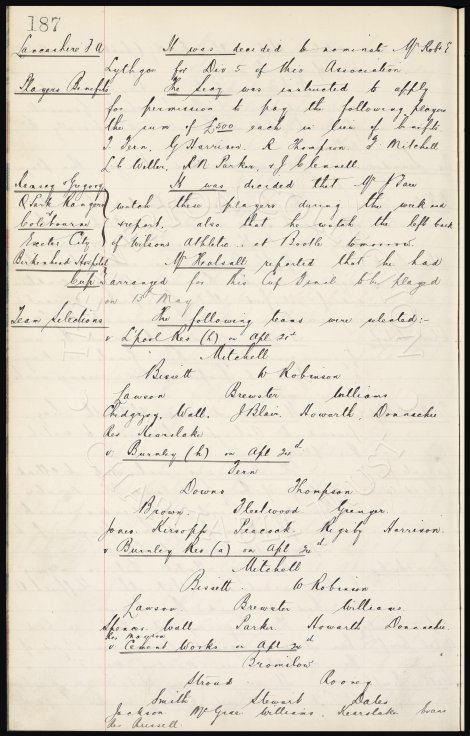 187
Lancashire F A It was decided to nominate Mr Robt E
Lythgoe for Div 5 of this Association
Players Benefits The Secy was instructed to apply
for permission to pay the following players
the sum of £500 each in lieu of benefits
T Fern, G Harrison, R Thompson, F Mitchell
L C Weller, R N Parker, & J Clennell
Ramsey & Gregory It was decided that Mr
Q Park Rangers watch these players during the week end
Colebourne & report. also that he watch the left back
Exeter City of Wilsons Athletic at Bootle tomorrow.
Birkenhead Hospital Mr Healsall reported that he had
Cup arranged for this Cup Final to be played
on 15th May
Team Selections The following teams were selected:-
v L'pool Res (h) on Apl 21st
Mitchell
Bissett W Robinson
Lawson Brewster Williams
Chedgzoy, Wall. J Blair. Howarth. Donnachie
Res Kearslake
v Burnley (h) on Apl 24d
Fern
Downs Thompson
Brown. Fleetwood Grenyer.
Jones. Kirsopp Peacock. Rigsby Harrison.
v Burnley Res (a) on Apl 24d
Mitchell
Bissett. W Robinson
Lawson Brewster Williams.
Spencer Wall Parker. Howarth Donnachie.
Res
v Cement Works on Apl 24d
Bromilow
Stroud Rooney
Smith Stewart Dales
Jackson McGrae Williams. Kearslake Evans
Res Russell.